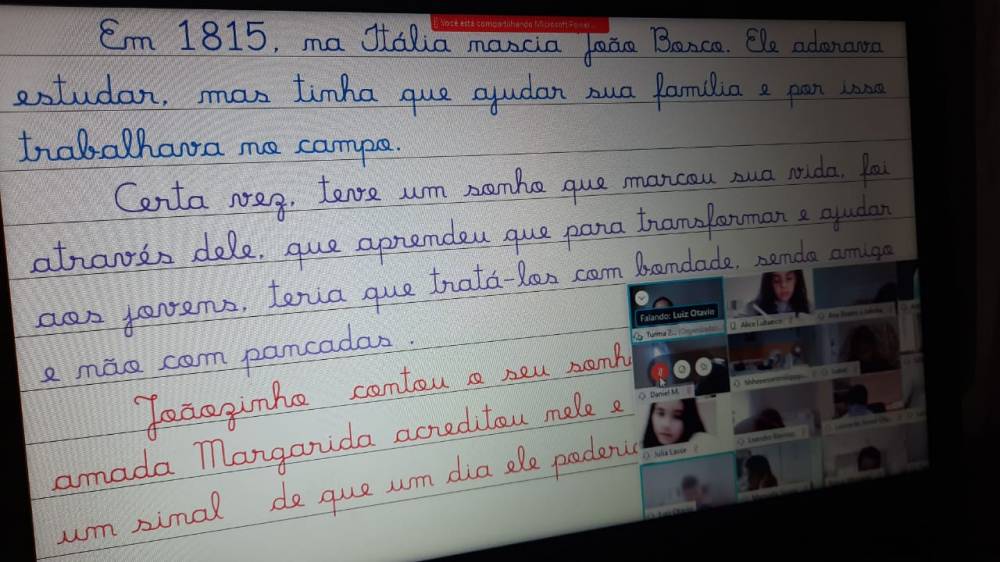 Você está compartilhando Microsoft Power...
Em 1815, na Itália nascia João Bosco. Ele adorava
estudar, mas tinha que ajudar sua família e por isso
trabalhava no campo.
Certa vez, teve um sonho que marcou sua vida, foi
através dele, que aprendeu que para transformar e ajudar
aos jovens, teria que tratá-los com bondade, sendo amigo
e não com pancadas.
Joãozinho contou o seu sonh
amada Margarida acreditou nele e
um sinal de que um dia ele poderia
Falando: Luiz Otavio
Turma 2... (Organizador
Daniel M.
Julia Lavor